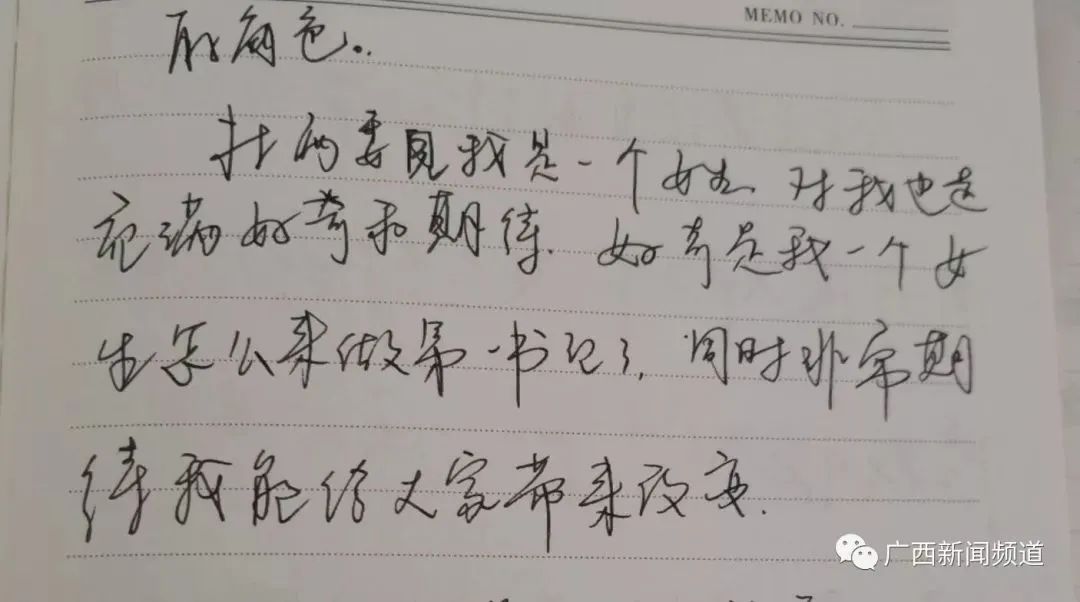 MEMO NO.
角色。
村两委见我是一个女生、对我也是
充满好奇和期待. 好奇是我一个女
生怎么来做第一书记了, 同时非常期
待我能给大家带来改变.
广西新闻频道